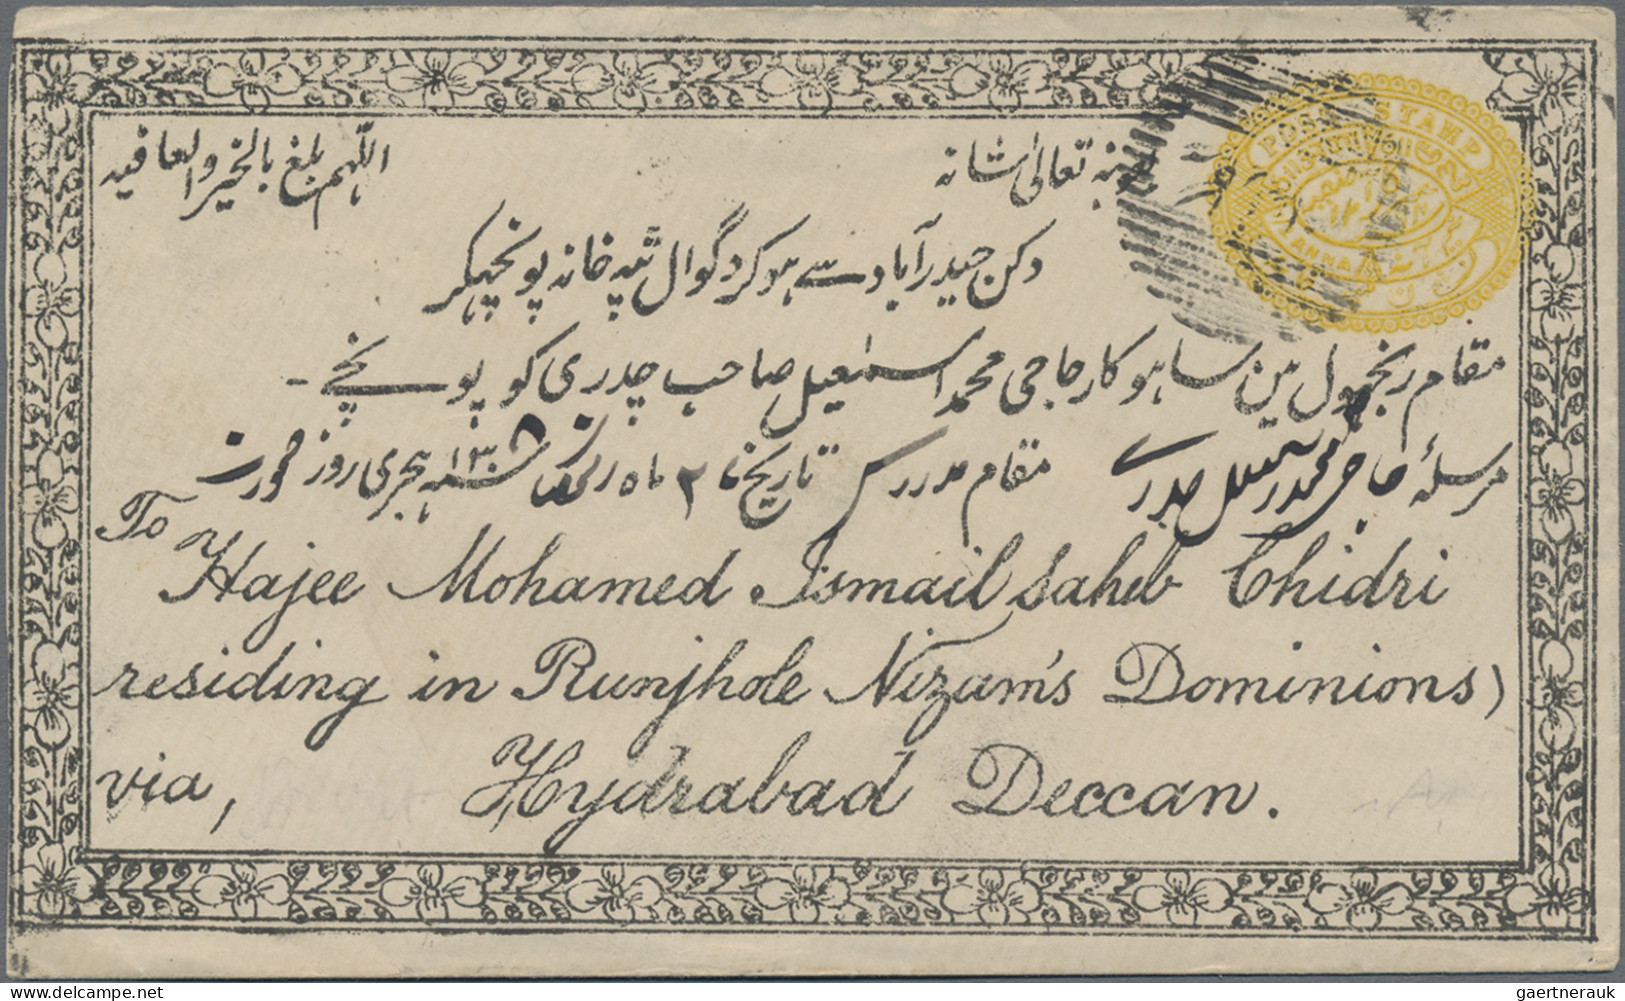 اللهم بلغ بالخير والعافيه
بمنه تعالیٰ شانہ
دکن حیدرآباد سے ہوکر دگوال ٹپہ خانہ پونچہکر
مقام رنجہول مین ساہوکار حاجی محمد اسمٰعیل صاحب چدری کو پونچے -
مرسلۂ حاجی محمد اسمعیل چدری مقام مدرس تاریخ ۲ ماہ سنہ ۱۳۰۵ ہجری روز
POST STAMP
ANNA
To
Hajee Mohamed Ismail Saheb Chidri
residing in Runjhole Nizam's Dominions)
via, Hydrabad Deccan.
gaertnerauk